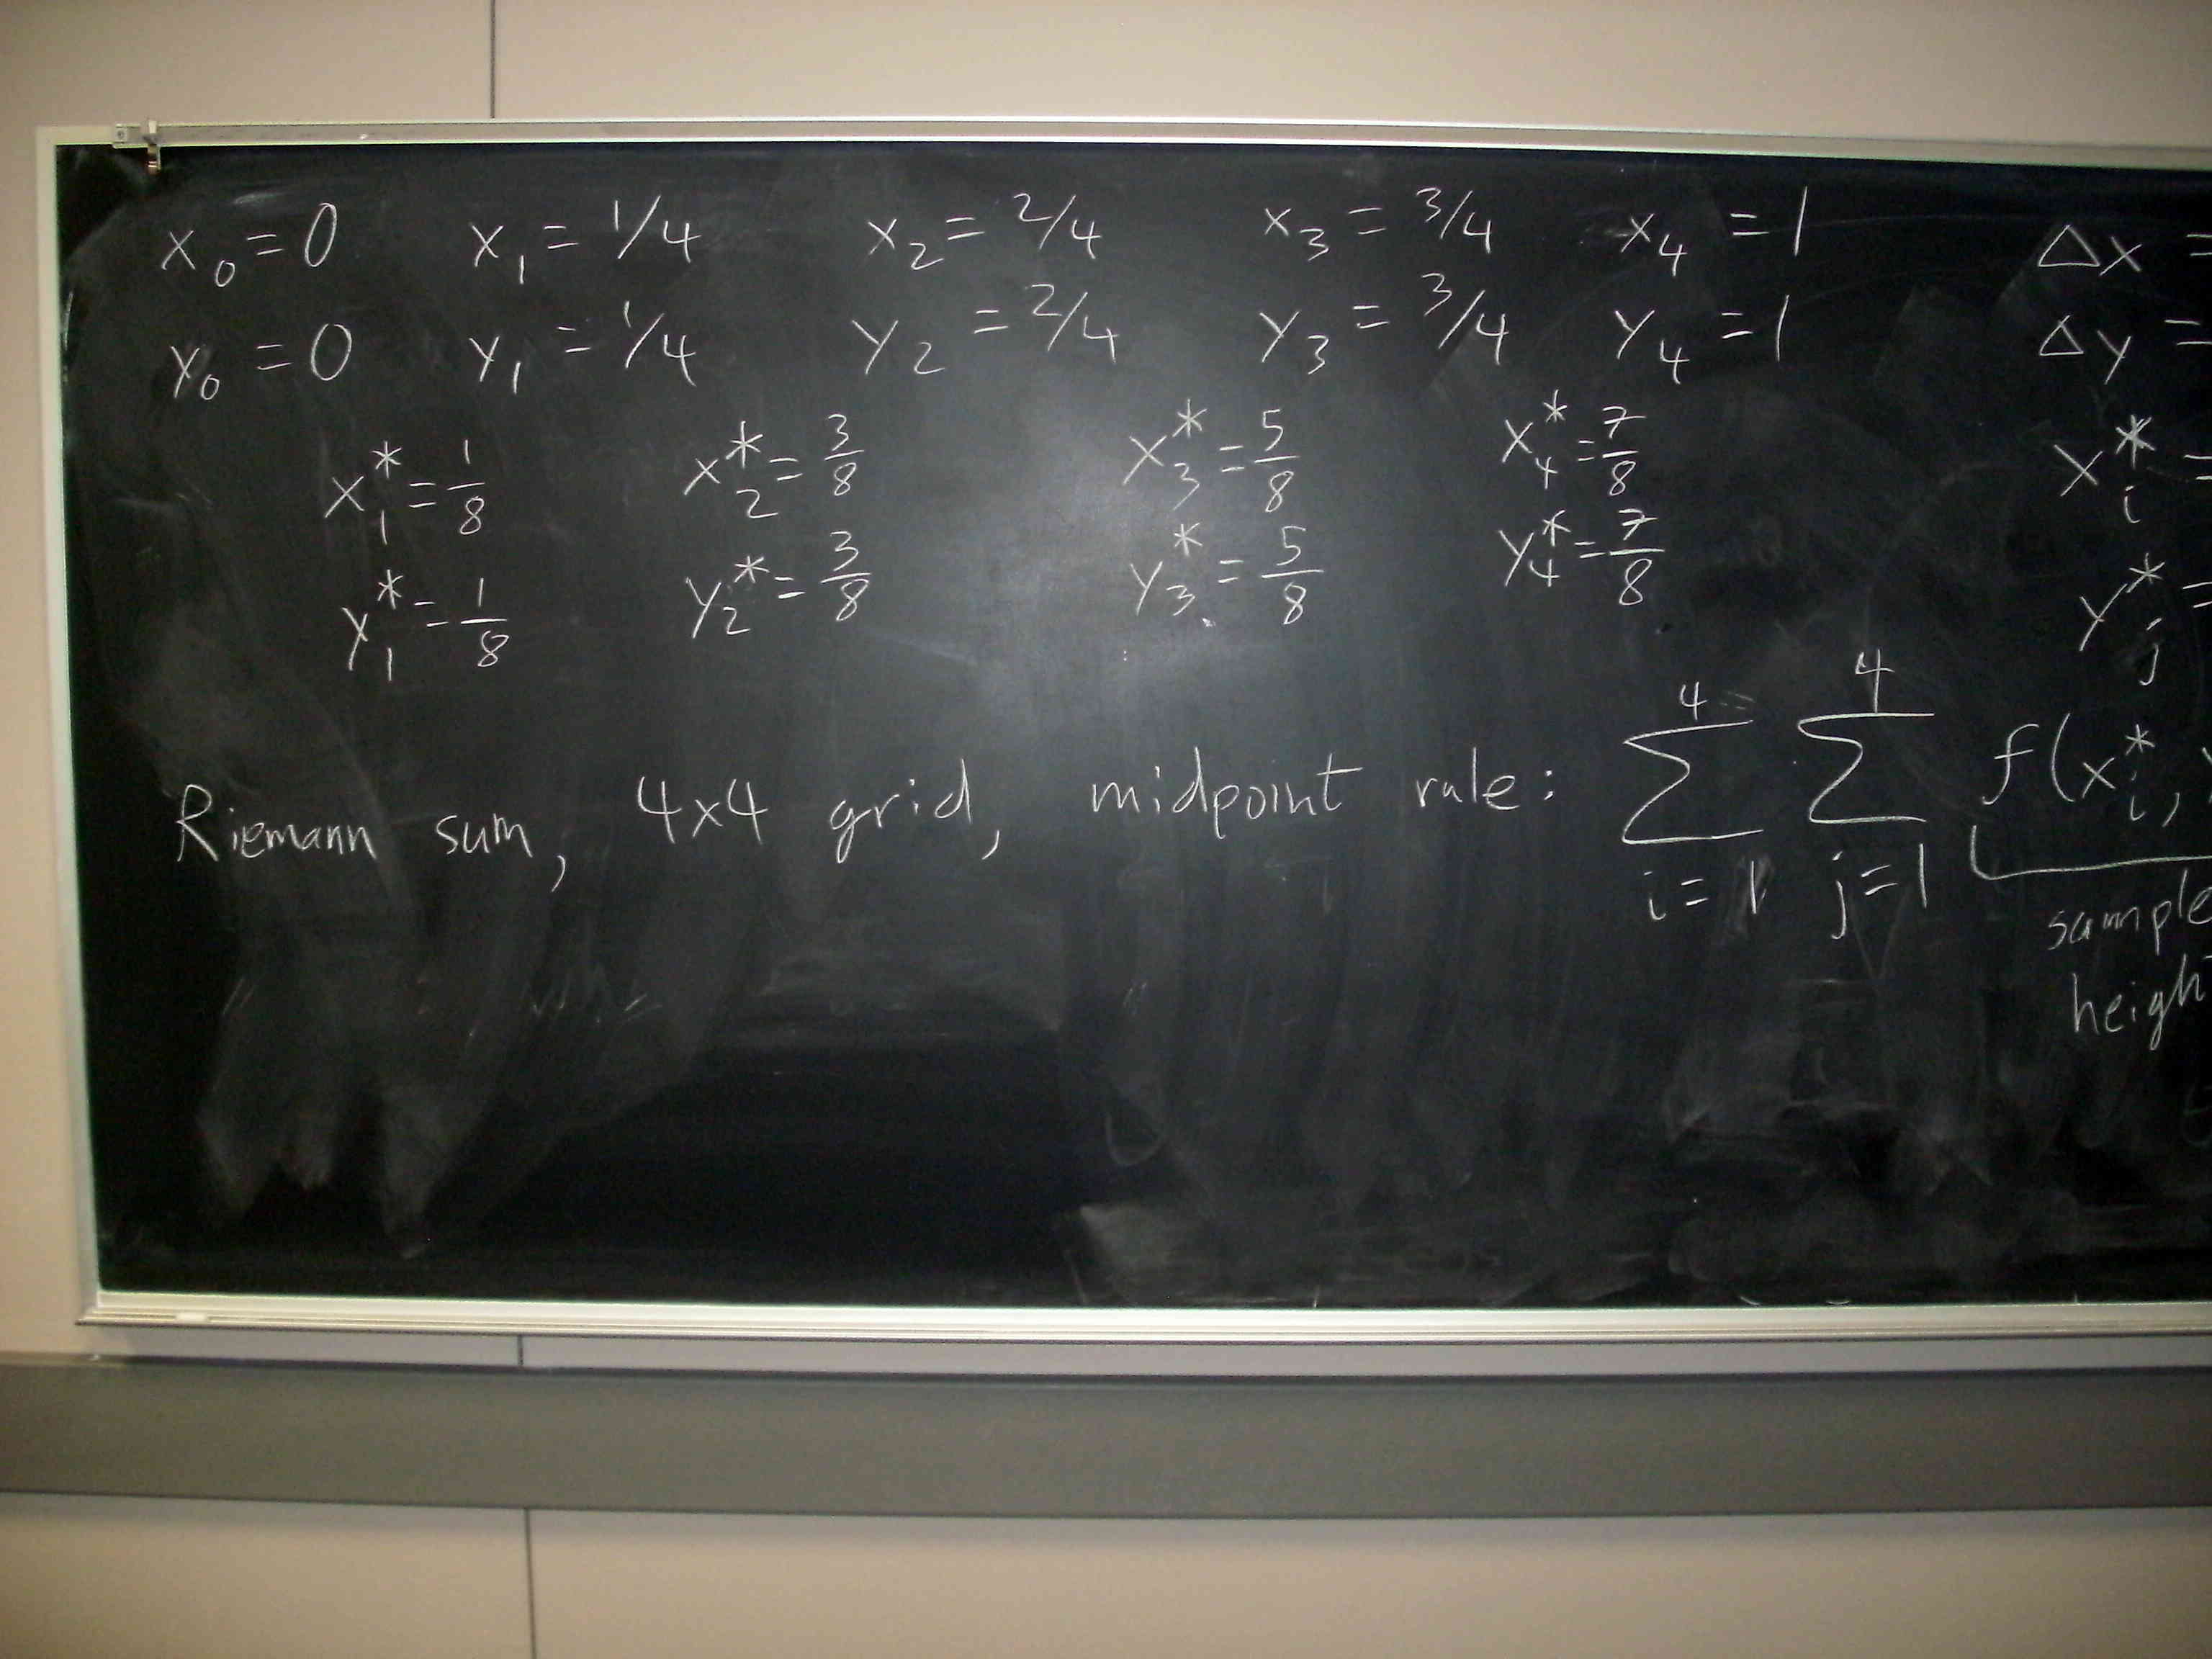 x₀ = 0 x₁ = 1/4 x₂ = 2/4 x₃ = 3/4 x₄ = 1 Δx =
y₀ = 0 y₁ = 1/4 y₂ = 2/4 y₃ = 3/4 y₄ = 1 Δy =
x₁* = 1/8 x₂* = 3/8 x₃* = 5/8 x₄* = 7/8 xᵢ* =
y₁* = 1/8 y₂* = 3/8 y₃* = 5/8 y₄* = 7/8 yⱼ* =
Riemann sum, 4x4 grid, midpoint rule: ∑_{i=1}^{4} ∑_{j=1}^{4} f(xᵢ*,
sample
heigh